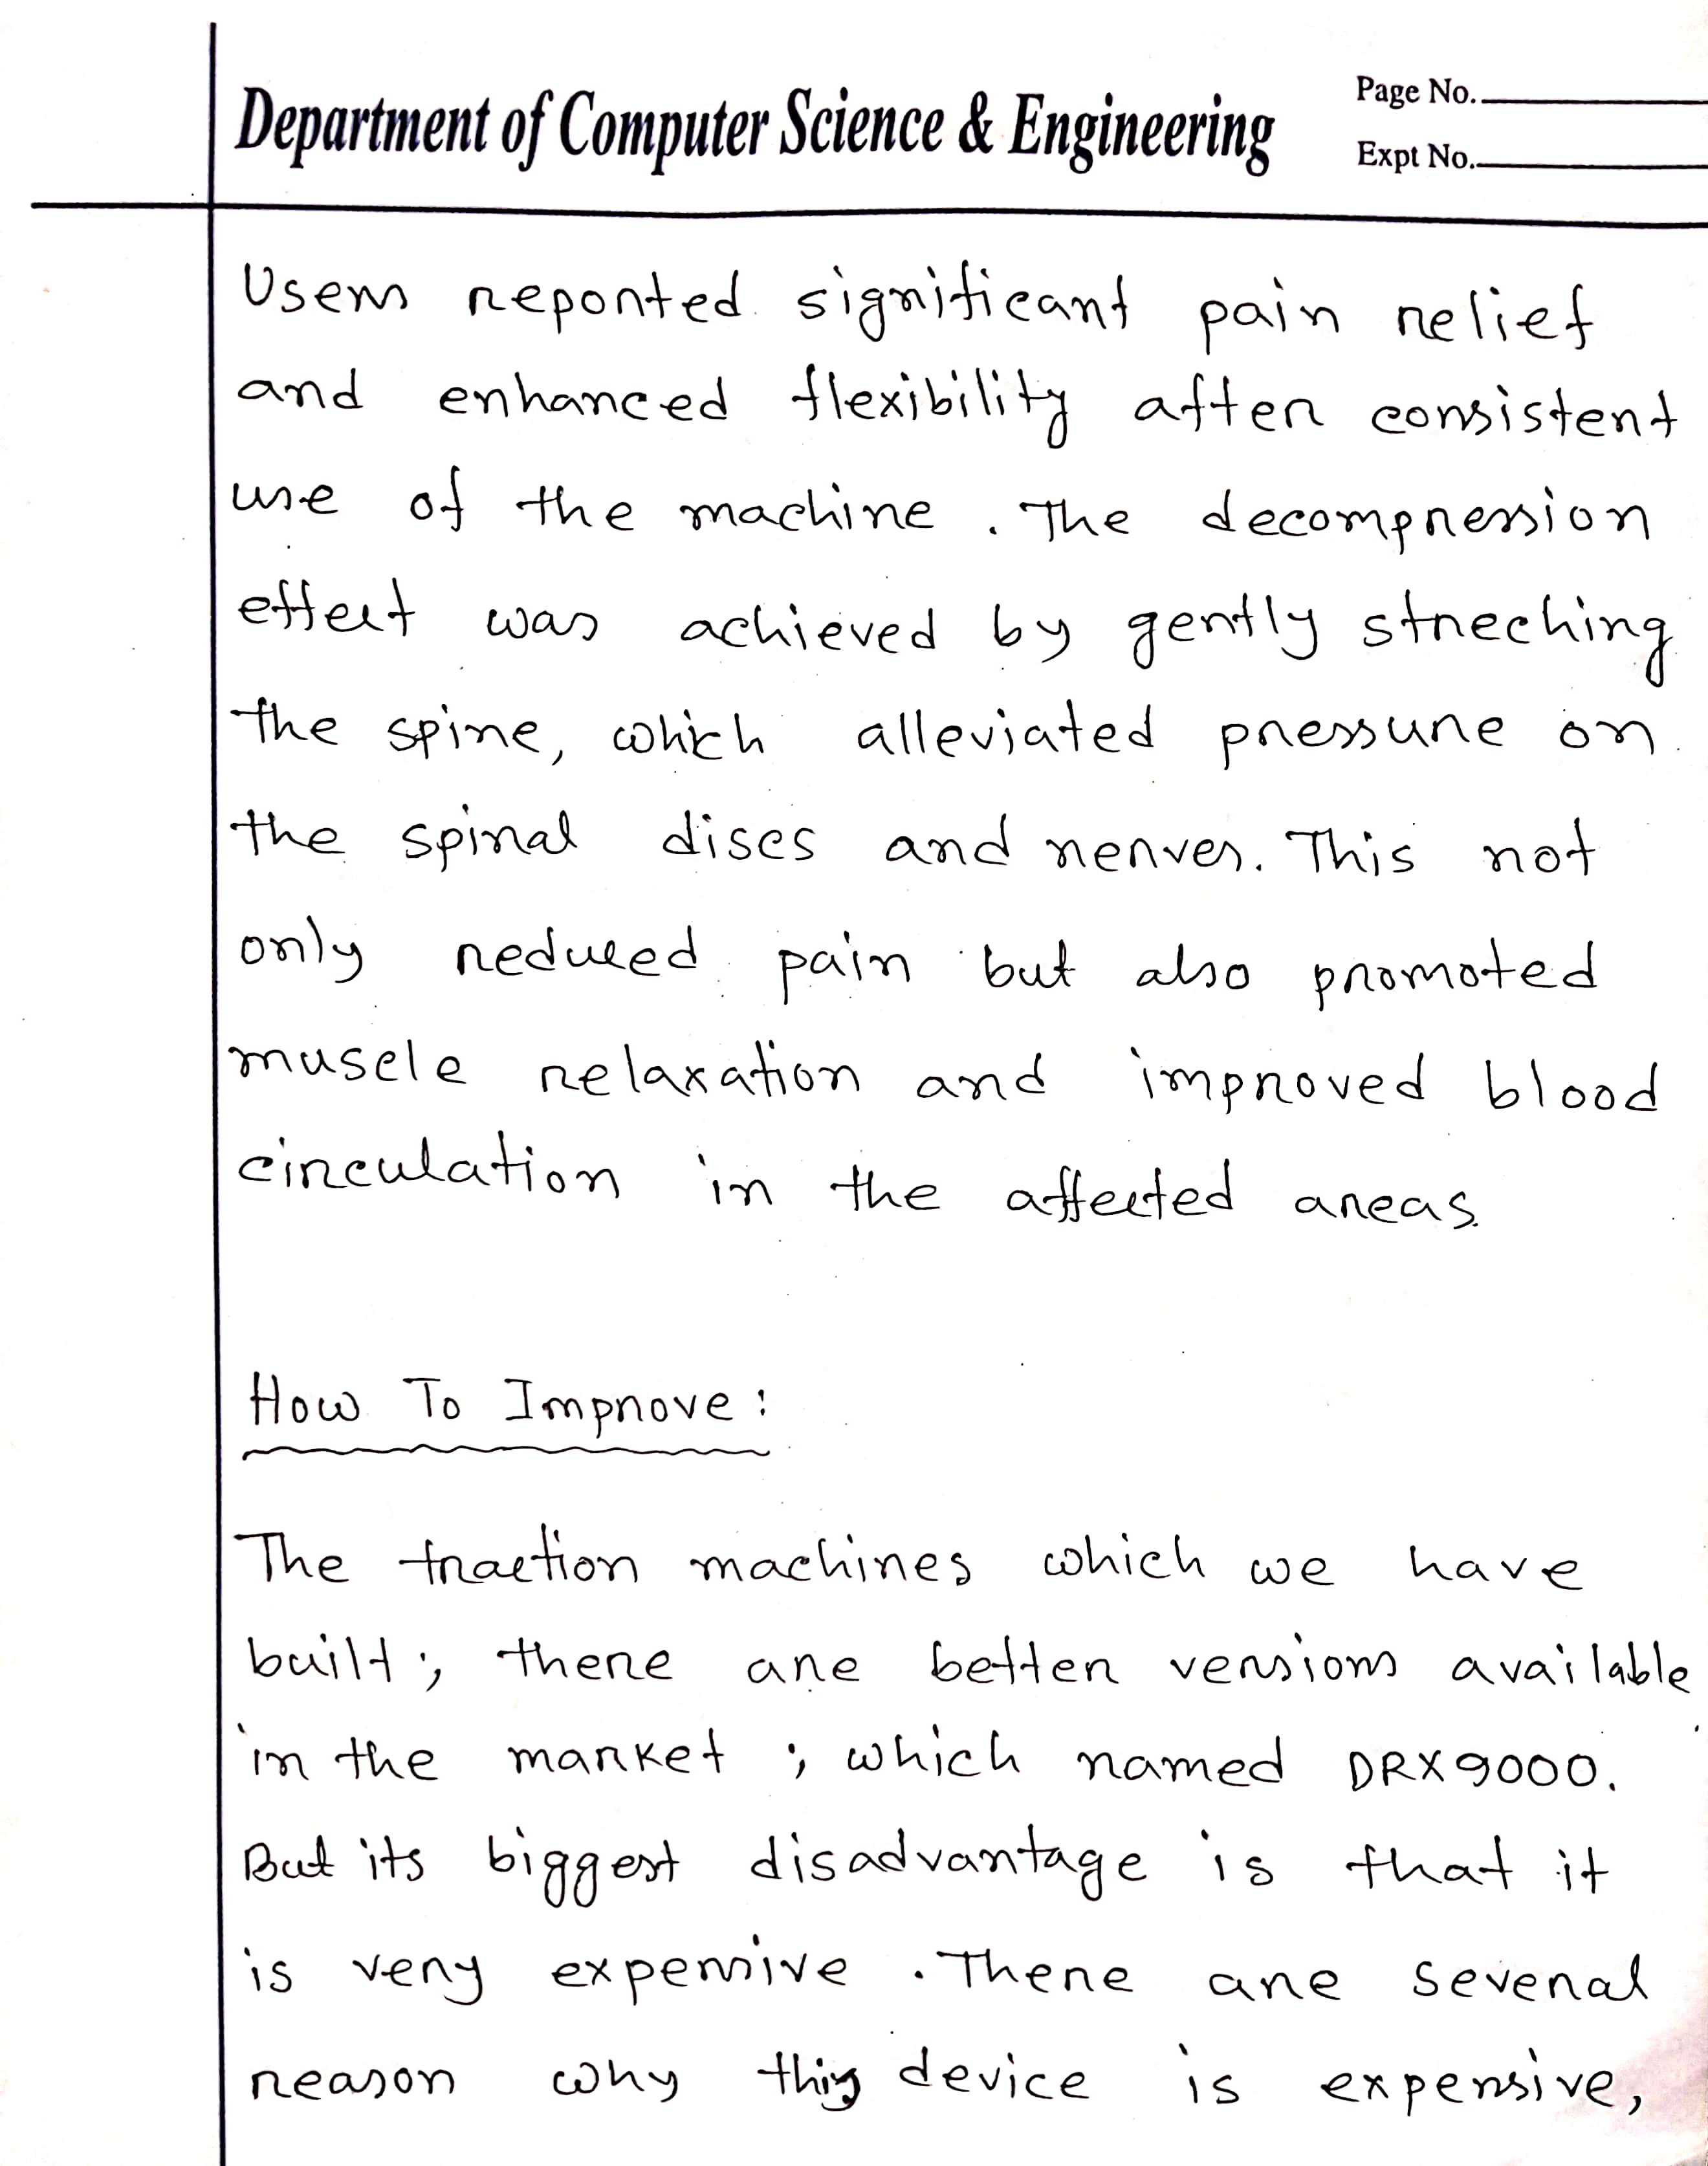 Department of Computer Science & Engineering
Page No.
Expt No.
Users reported significant pain relief
and enhanced flexibility after consistent
use of the machine. The decompression
effect was achieved by gently streching
the spine, which alleviated pressure on
the spinal discs and nerves. This not
only reduced pain but also promoted
muscle relaxation and improved blood
circulation in the affected areas.
How To Improve:
The traction machines which we have
built; there are better versions available
in the market; which named DRX9000.
But its biggest disadvantage is that it
is very expensive. There are several
reason why this device is expensive,